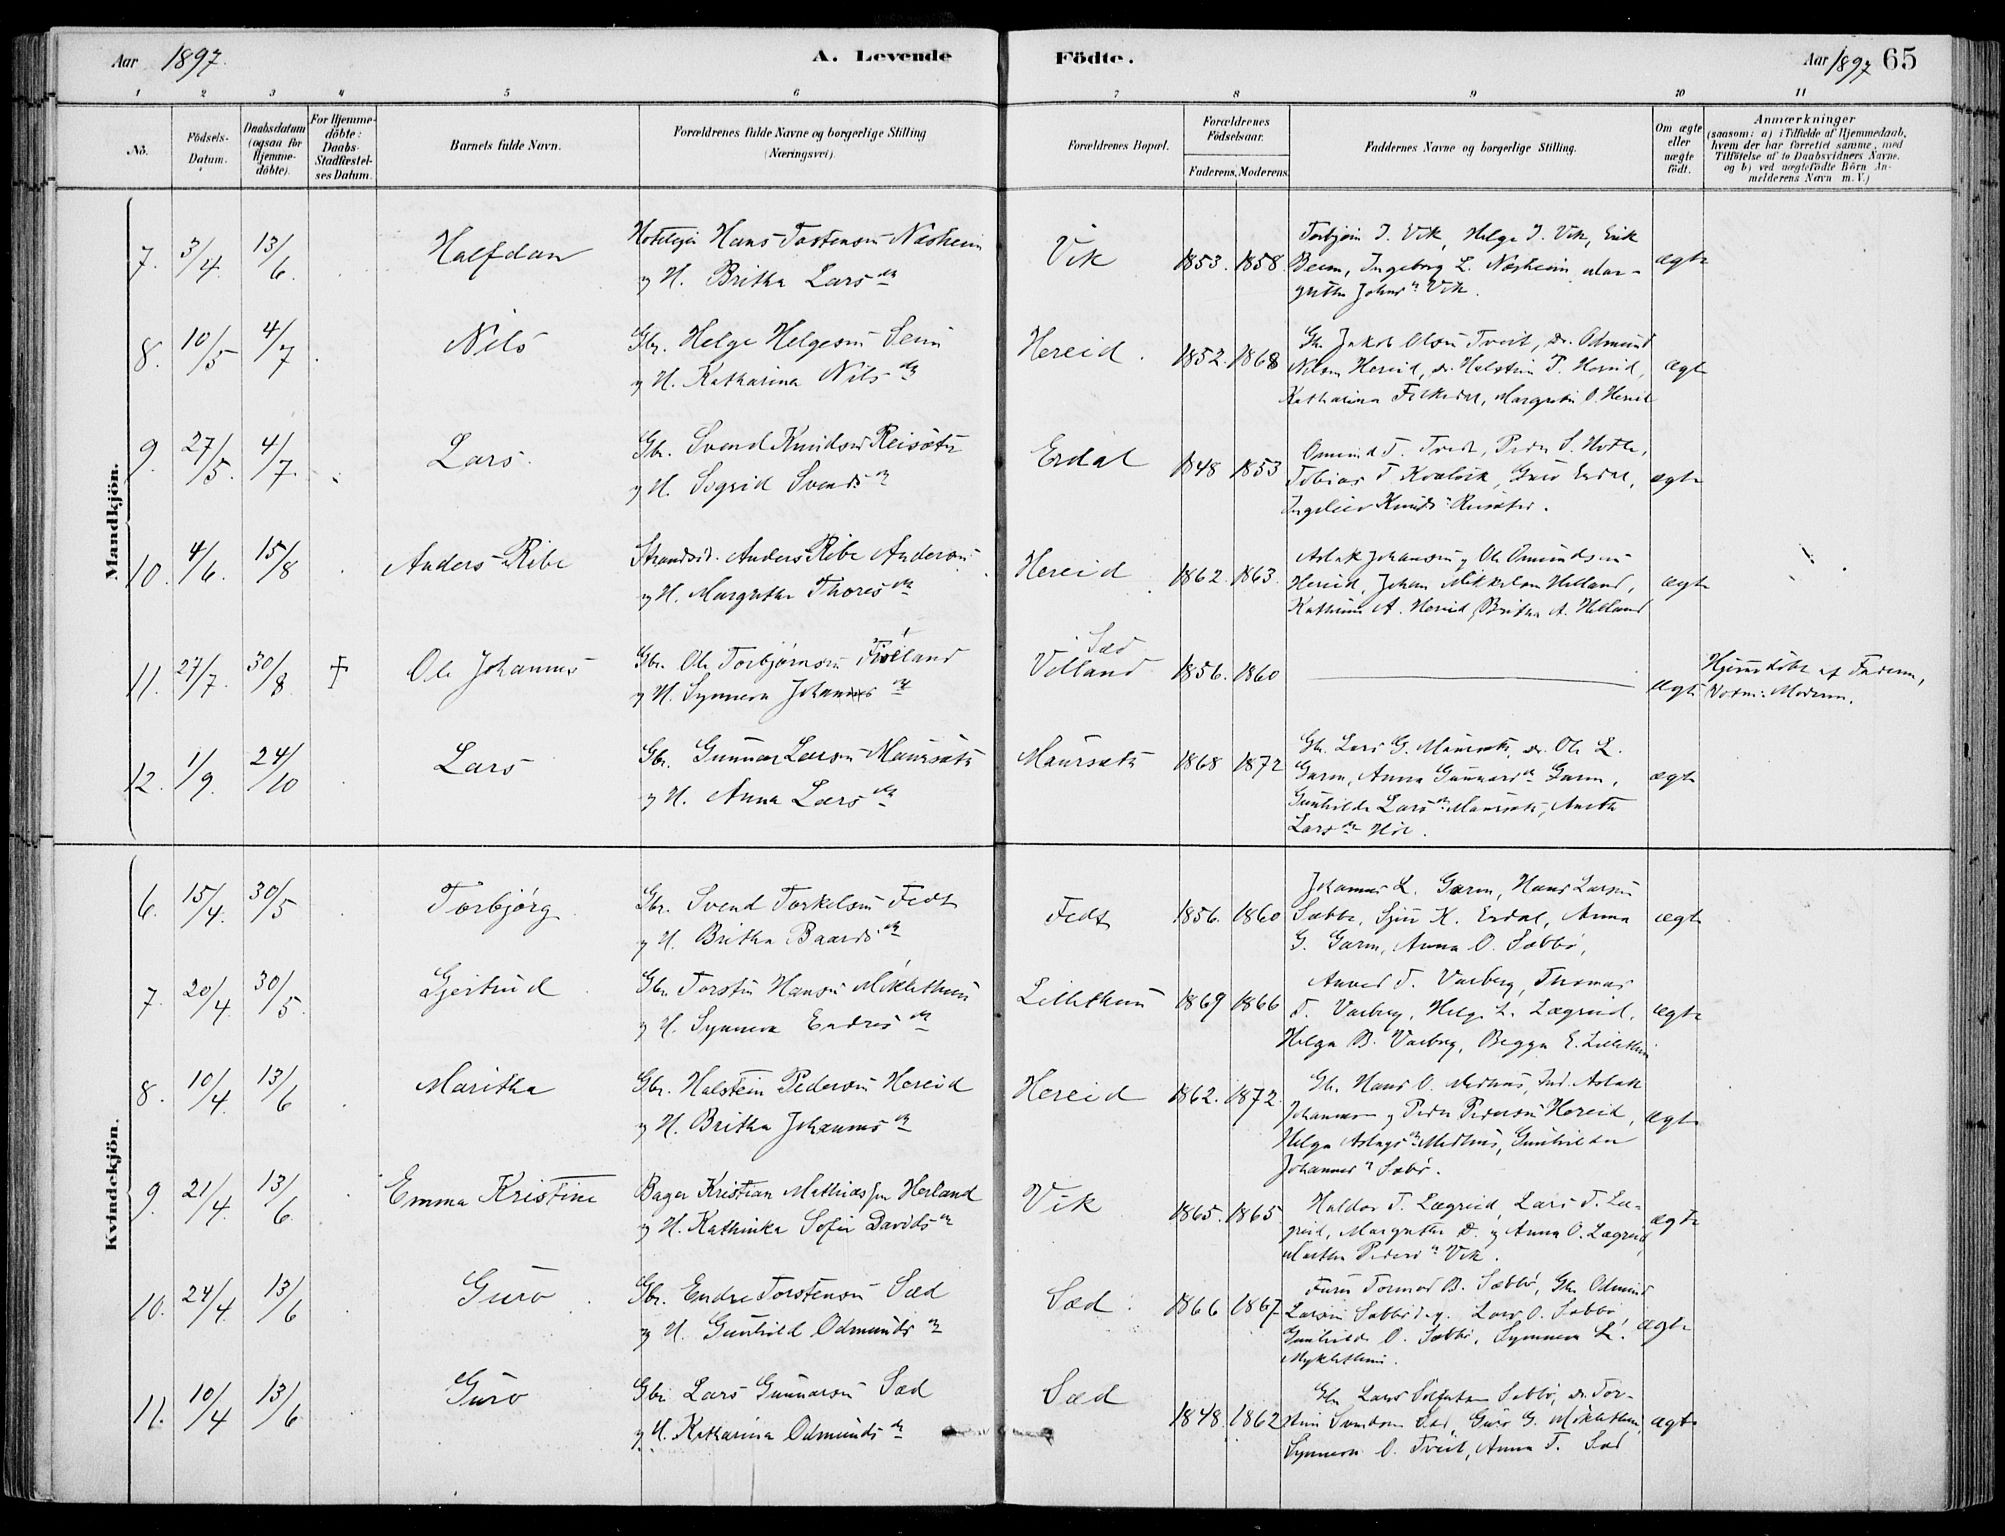 Aar 1897.
A. Levende
Födte.
Aar 1897 65
1 2 3 4 5 6 7 8 9 10 11
No.
Födsels-
Datum.
Daabsdatum
(ogsaa for
Hjemme-
döbte).
For Hjemme-
döbte:
Daabs-
Stadfæstel-
ses Datum.
Barnets fulde Navn.
Forældrenes fulde Navne og borgerlige Stilling
(Næringsvei).
Forældrenes Bopæl.
Forældrenes
Födselsaar.
Faderens. Moderens.
Faddernes Navne og borgerlige Stilling.
Om ægte
eller
uægte
födt.
Anmærkninger
(saasom: a) i Tilfælde af Hjemmedaab,
hvem der har forrettet samme, med
Tilföielse af to Daabsvidners Navne,
og b) ved uægtefödte Börn An-
melderens Navn m. V.)
Mandkjön.
7. 3/4. 13/6. Halfdan
Hans Torstensen Næsheim
og H. Britha Larsdr
Vik 1853. 1858.
Torbjørn J. Vik, Helge J. Vik, Erik
Ingeborg L. Næsheim, Mar-
gretha Johnsdr Vik.
ægte
8. 10/5 4/7 Nils
Gbr. Helge Helgesen Seim
og H. Katharina Nilsdr
Hereid. 1852. 1868
Gbr. Jakob Olsen Tveit, do. Odmund
Nilsen Hereid, do. Halstein P. Hereid,
Katharina Margretha O. Hereid
ægte
9. 27/5. 4/7. Lars.
Gbr. Svend Knudsen Reisæter
og H. Sigrid Svendsdr
Erdal 1848 1853
Omund T. Tveit, Peder S.
Tobias T. Guro Erdal,
Knudsdr Reisæter.
ægte
10. 4/6. 15/8 Anders Ribe
Strandsid. Anders Ribe Andersen
og H. Margretha Thoresdr
Hereid 1862. 1863.
Aslak Johansen og Ole Omundsen
Hereid, Johan Mikkelsen Helland,
A. Hereid, Britha A. Helland
ægte
11. 27/7. 30/8 Ole Johannes
Gbr. Ole Torbjørnsen
og H. Synneva Johannesdr
Sæd
Velland 1856. 1860
ægte
Hjemdøbt af Faderen,
Moderen.
12. 1/9. 24/10 Lars
Gbr. Gunnar Larsen Maursæth
og H. Anna Larsdr
Maursæth 1868 1872
Gbr. Lars G. Maursæth, do. Ole L.
Garen, Anna Gunnarsdr Garen,
Gunhilda Larsdr Maursæth,
Larsdr
ægte
Kvindekjön.
6. 15/4. 30/5 Torbjörg
Gbr. Svend Torkelsen Fedt
og H. Britha Baardsdr
Fedt 1856. 1860
Johannes L. Garen, Hans Larsen
Sæbbø, K. Erdal, Anna
G. Garen, Anna O. Sæbbø,
ægte
7. 20/4. 30/5. Gjertrud
Gbr. Torstein Hansen Miklethun
og H. Synneva Endresdr
Lillethun 1869 1866
T. Varberg, Thomas
T. Varberg, Helge L. Lægreid,
Helga B. Varberg, Begga E. Lillethun
ægte
8. 10/4. 13/6 Maritha
Gbr. Halstein Pedersen Hereid
og H. Britha Johannesdr
Hereid 1862. 1872.
Gbr. Hans O. Medhus, Ind. Aslak
Johannesen og Peder Pedersen Hereid,
Helga Aslagsdr Medhus, Gunhilda
Johannesdr Sæbø.
ægte
9. 21/4. 13/6. Emma Kristine
Bager Kristian Mathiassen Herland
og H. Kathinka Sofie Davidsdr
Vik 1865. 1865
Haldor T. Lægreid, Lars T. Læ-
greid, Margretha D. og Anna O. Lægreid,
Martha Pedersdr Vik.
ægte
10. 24/4. 13/6 Guro.
Gbr. Endre Torstensen Sæd
og H. Gunhild Odmundsdr
Sæd. 1866 1867
Tormod B. Sæbbø, Gbr. Odmund
Larsen Sæbbø, Lars O. Sæbbø,
Gunhilda O. Sæbbø, Synneva L.
Myklethun.
ægte
11. 10/4 13/6 Guro
Gbr. Lars Gunnarsen Sæd
og H. Katharina Odmundsdr
Sæd 1848. 1862
Gbr. Lars Sæbbø, do. Tor-
stein Svendsen Sæd, Guro G. Miklethun,
Synneva O. Tveit, Anna T. Sæd
ægte